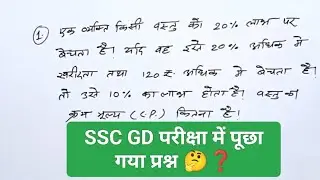 1. एक व्यक्ति किसी वस्तु को 20% लाभ पर
बेचता है। यदि वह इसे 20% अधिक में
खरीदता तथा 120 रु. अधिक में बेचता है।
तो उसे 10% का लाभ होता है। वस्तु का
क्रय मूल्य (C.P.) कितना है।
SSC GD परीक्षा में पूछा
गया प्रश्न 🤔❓